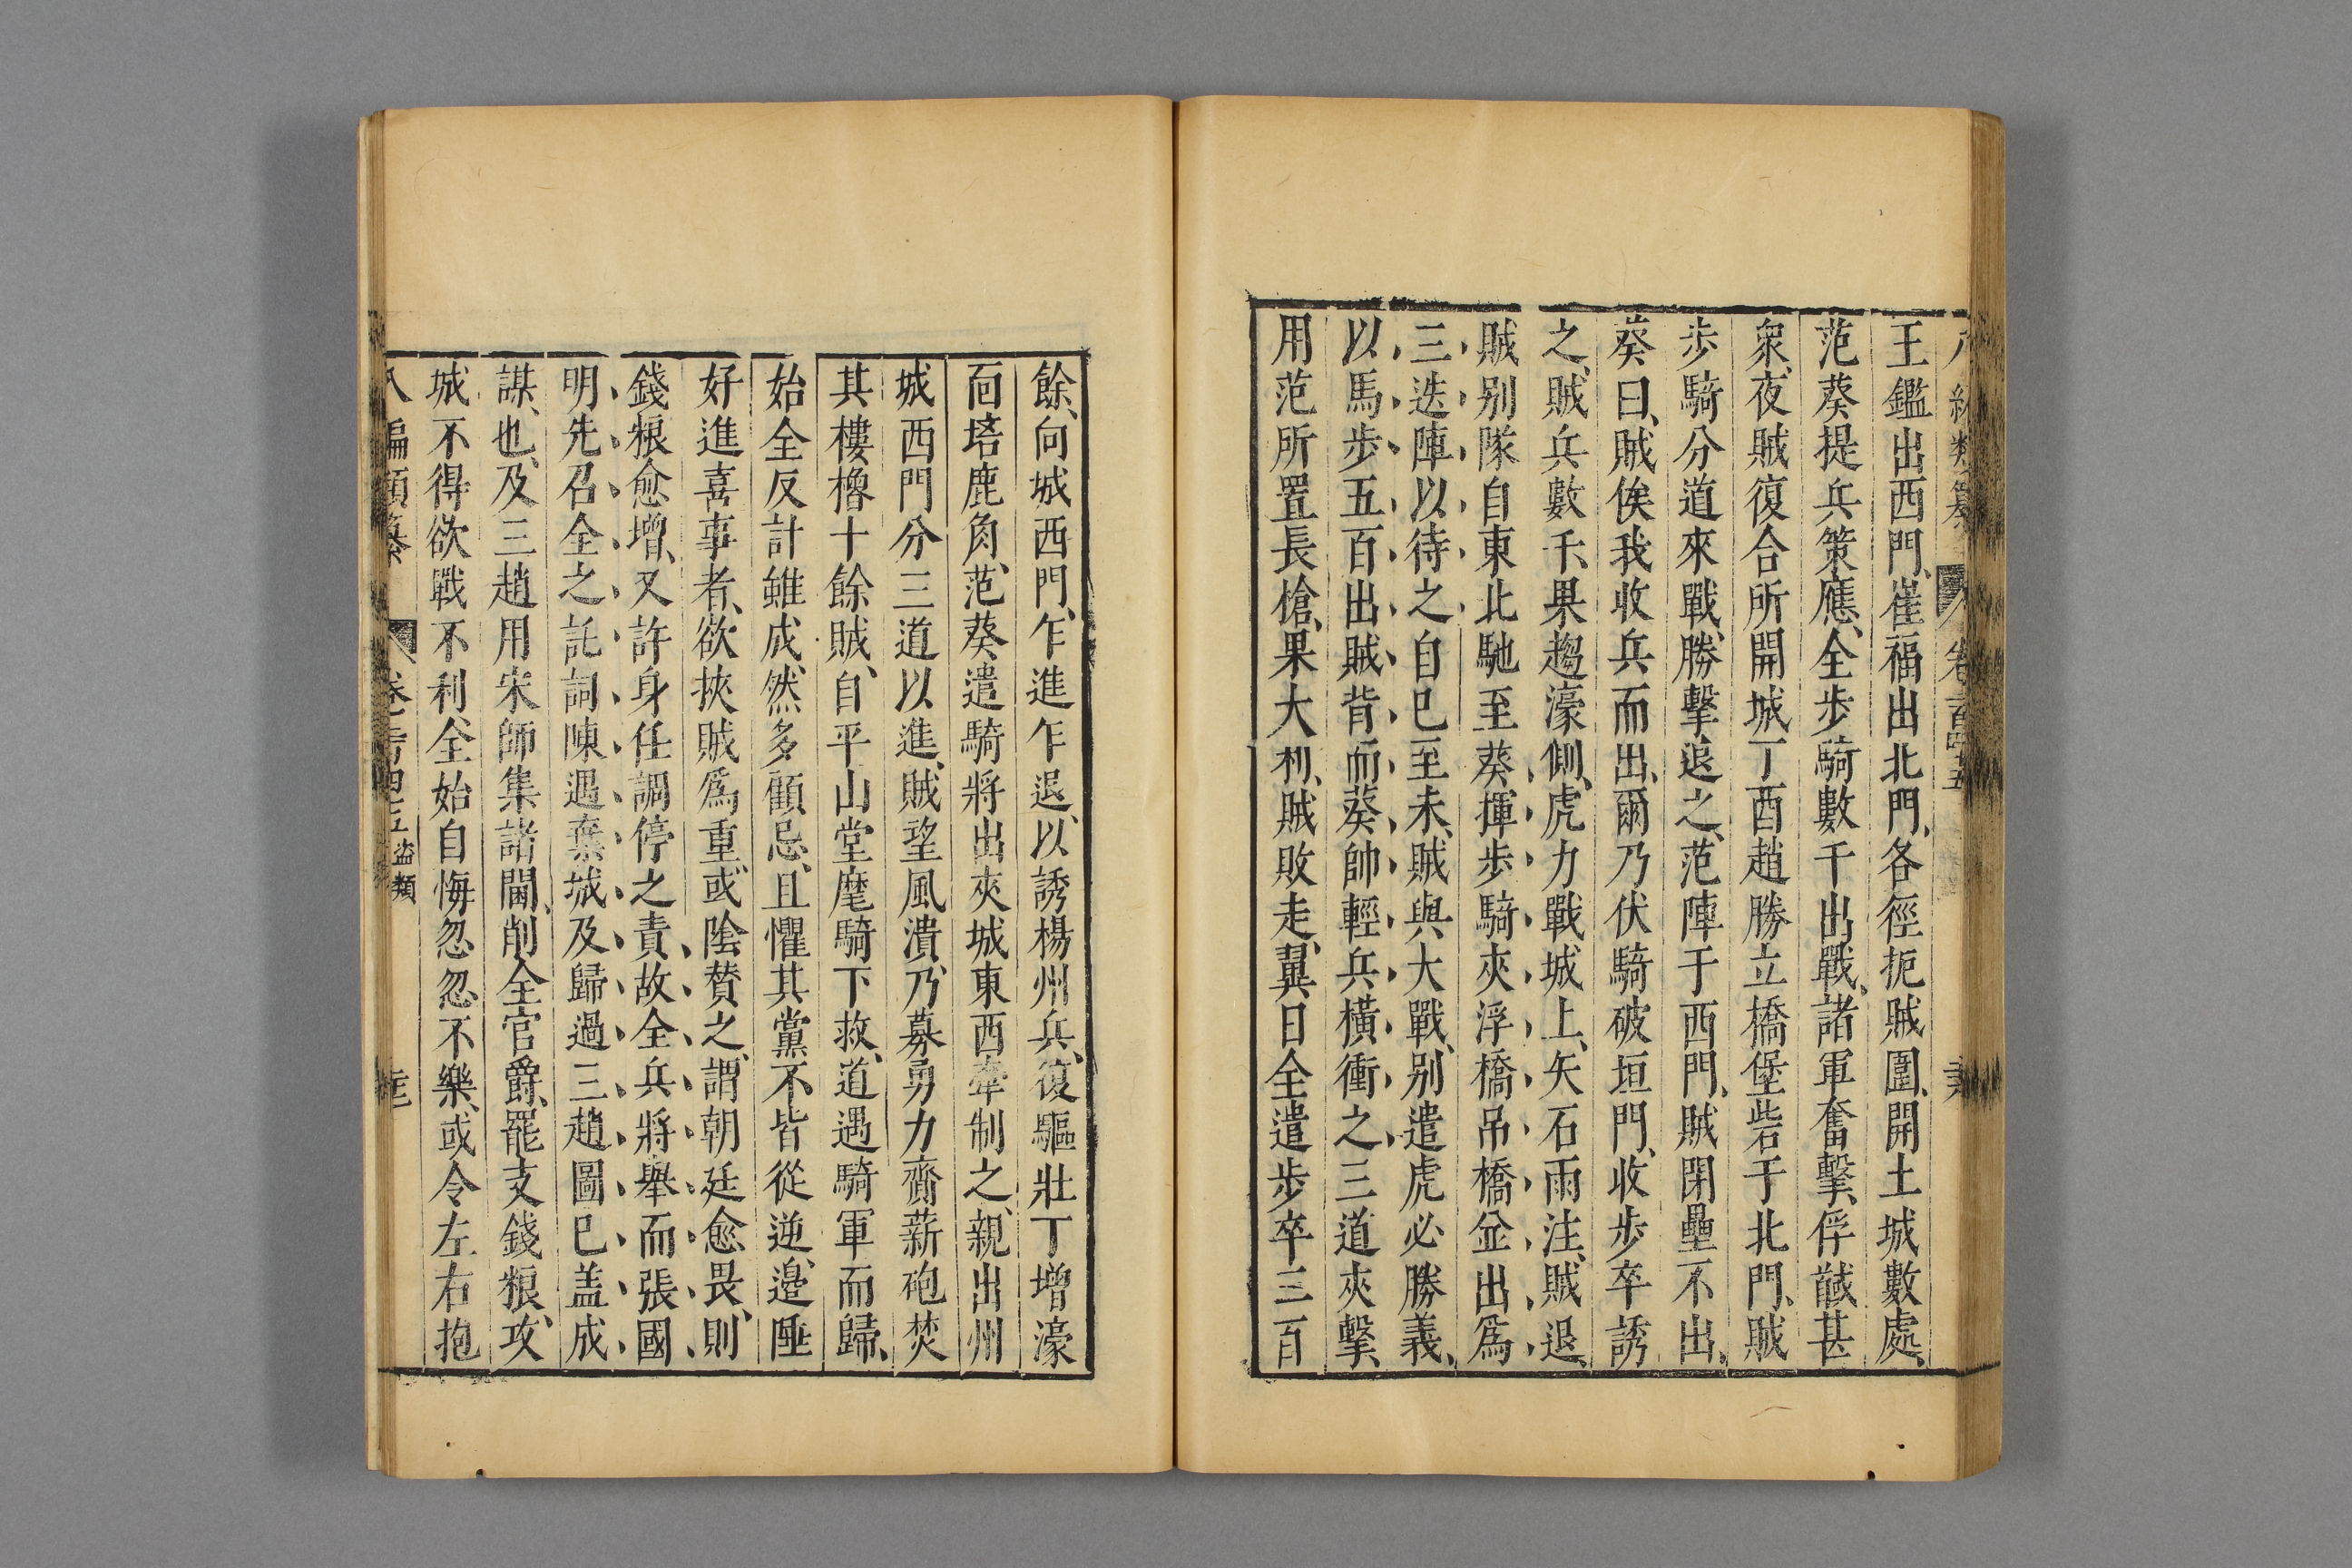 八編類纂 卷一百四十五
王鑑出西門、崔福出北門、各徑扼賊圍、開土城數處、
范葵提兵策應、全步騎數千出戰、諸軍奮擊、俘馘甚
衆、夜賊復合所開城、丁酉趙勝立橋堡砦于北門、賊
步騎分道來戰、勝擊退之、范陣于西門、賊閉壘不出、
葵曰、賊俟我收兵而出、爾乃伏騎破垣門、收步卒誘
之、賊兵數千、果趨濠側、虎力戰城上、矢石雨注、賊退、
賊别隊自東北馳至葵揮步騎夾浮橋吊橋並出爲
三迭陣以待之自巳至未、賊與大戰、别遣虎必勝義、
以馬步五百出賊背而葵帥輕兵橫衝之三道夾擊、
用范所置長槍、果大利、賊敗走、翼日全遣步卒三百
餘、向城西門、乍進乍退、以誘楊州兵、復驅壯丁增濠
面培鹿角、范葵遣騎將出夾城東西牽制之、親出州
城西門分三道以進、賊望風潰、乃募勇力齎薪砲焚
其樓櫓十餘賊、自平山堂麾騎下救、道遇騎軍而歸、
始全反計雖成、然多顧忌、且懼其黨不皆從逆、邊陲
好進喜事者、欲挾賊爲重、或陰贊之、謂朝廷愈畏、則
錢粮愈增、又許身任調停之責、故全兵將舉而張國
明先召全之託詞陳遇棄城及歸過三趙圖巳盖成
謀也、及三趙用宋師集諸閫、削全官爵、罷支錢粮、攻
城不得欲戰不利、全始自悔忽忽不樂、或令左右抱
八編類纂 卷一百四十五 盗類